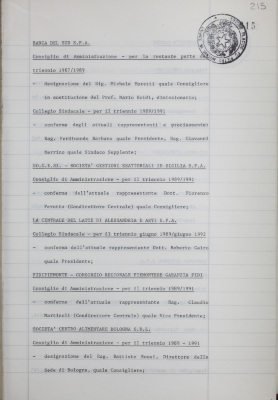 215
BANCA DEL SUD S.P.A.
Consiglio di Amministrazione - per la restante parte
triennio 1987/1989
- designazione del Sig. Michele Moretti quale Consigliere
in sostituzione del Prof. Mario dimissionario;
Collegio Sindacale - per il triennio 1989/1991
- conferma degli attuali rappresentanti e precisamente:
Rag. Ferdinando quale Presidente, Rag. Giovanni
quale Sindaco Supplente;
- SOCIETA' GESTIONI ESATTORIALI IN SICILIA S.P.A.
Consiglio di Amministrazione - per il triennio 1989/1991
- conferma dell'attuale rappresentante Dott. Fiorenzo
(Condirettore Centrale) quale Consigliere;
LA CENTRALE DEL LATTE DI ALESSANDRIA E ASTI S.P.A.
Collegio Sindacale - per il triennio giugno 1989/giugno 1992
- conferma dell'attuale rappresentante Dott. Roberto
quale Presidente;
FIDIPIEMONTE - CONSORZIO REGIONALE PIEMONTESE GARANZIA FIDI
Consiglio di Amministrazione - per il triennio 1989/1991
- conferma dell'attuale rappresentante Rag. Claudio
(Condirettore Centrale) quale Vice Presidente;
SOCIETA' CENTRO ALIMENTARE BOLOGNA S.R.L.
Consiglio di Amministrazione - per il triennio 1989 - 1991
- designazione del Rag. Battista Direttore della
Sede di Bologna, quale Consigliere;